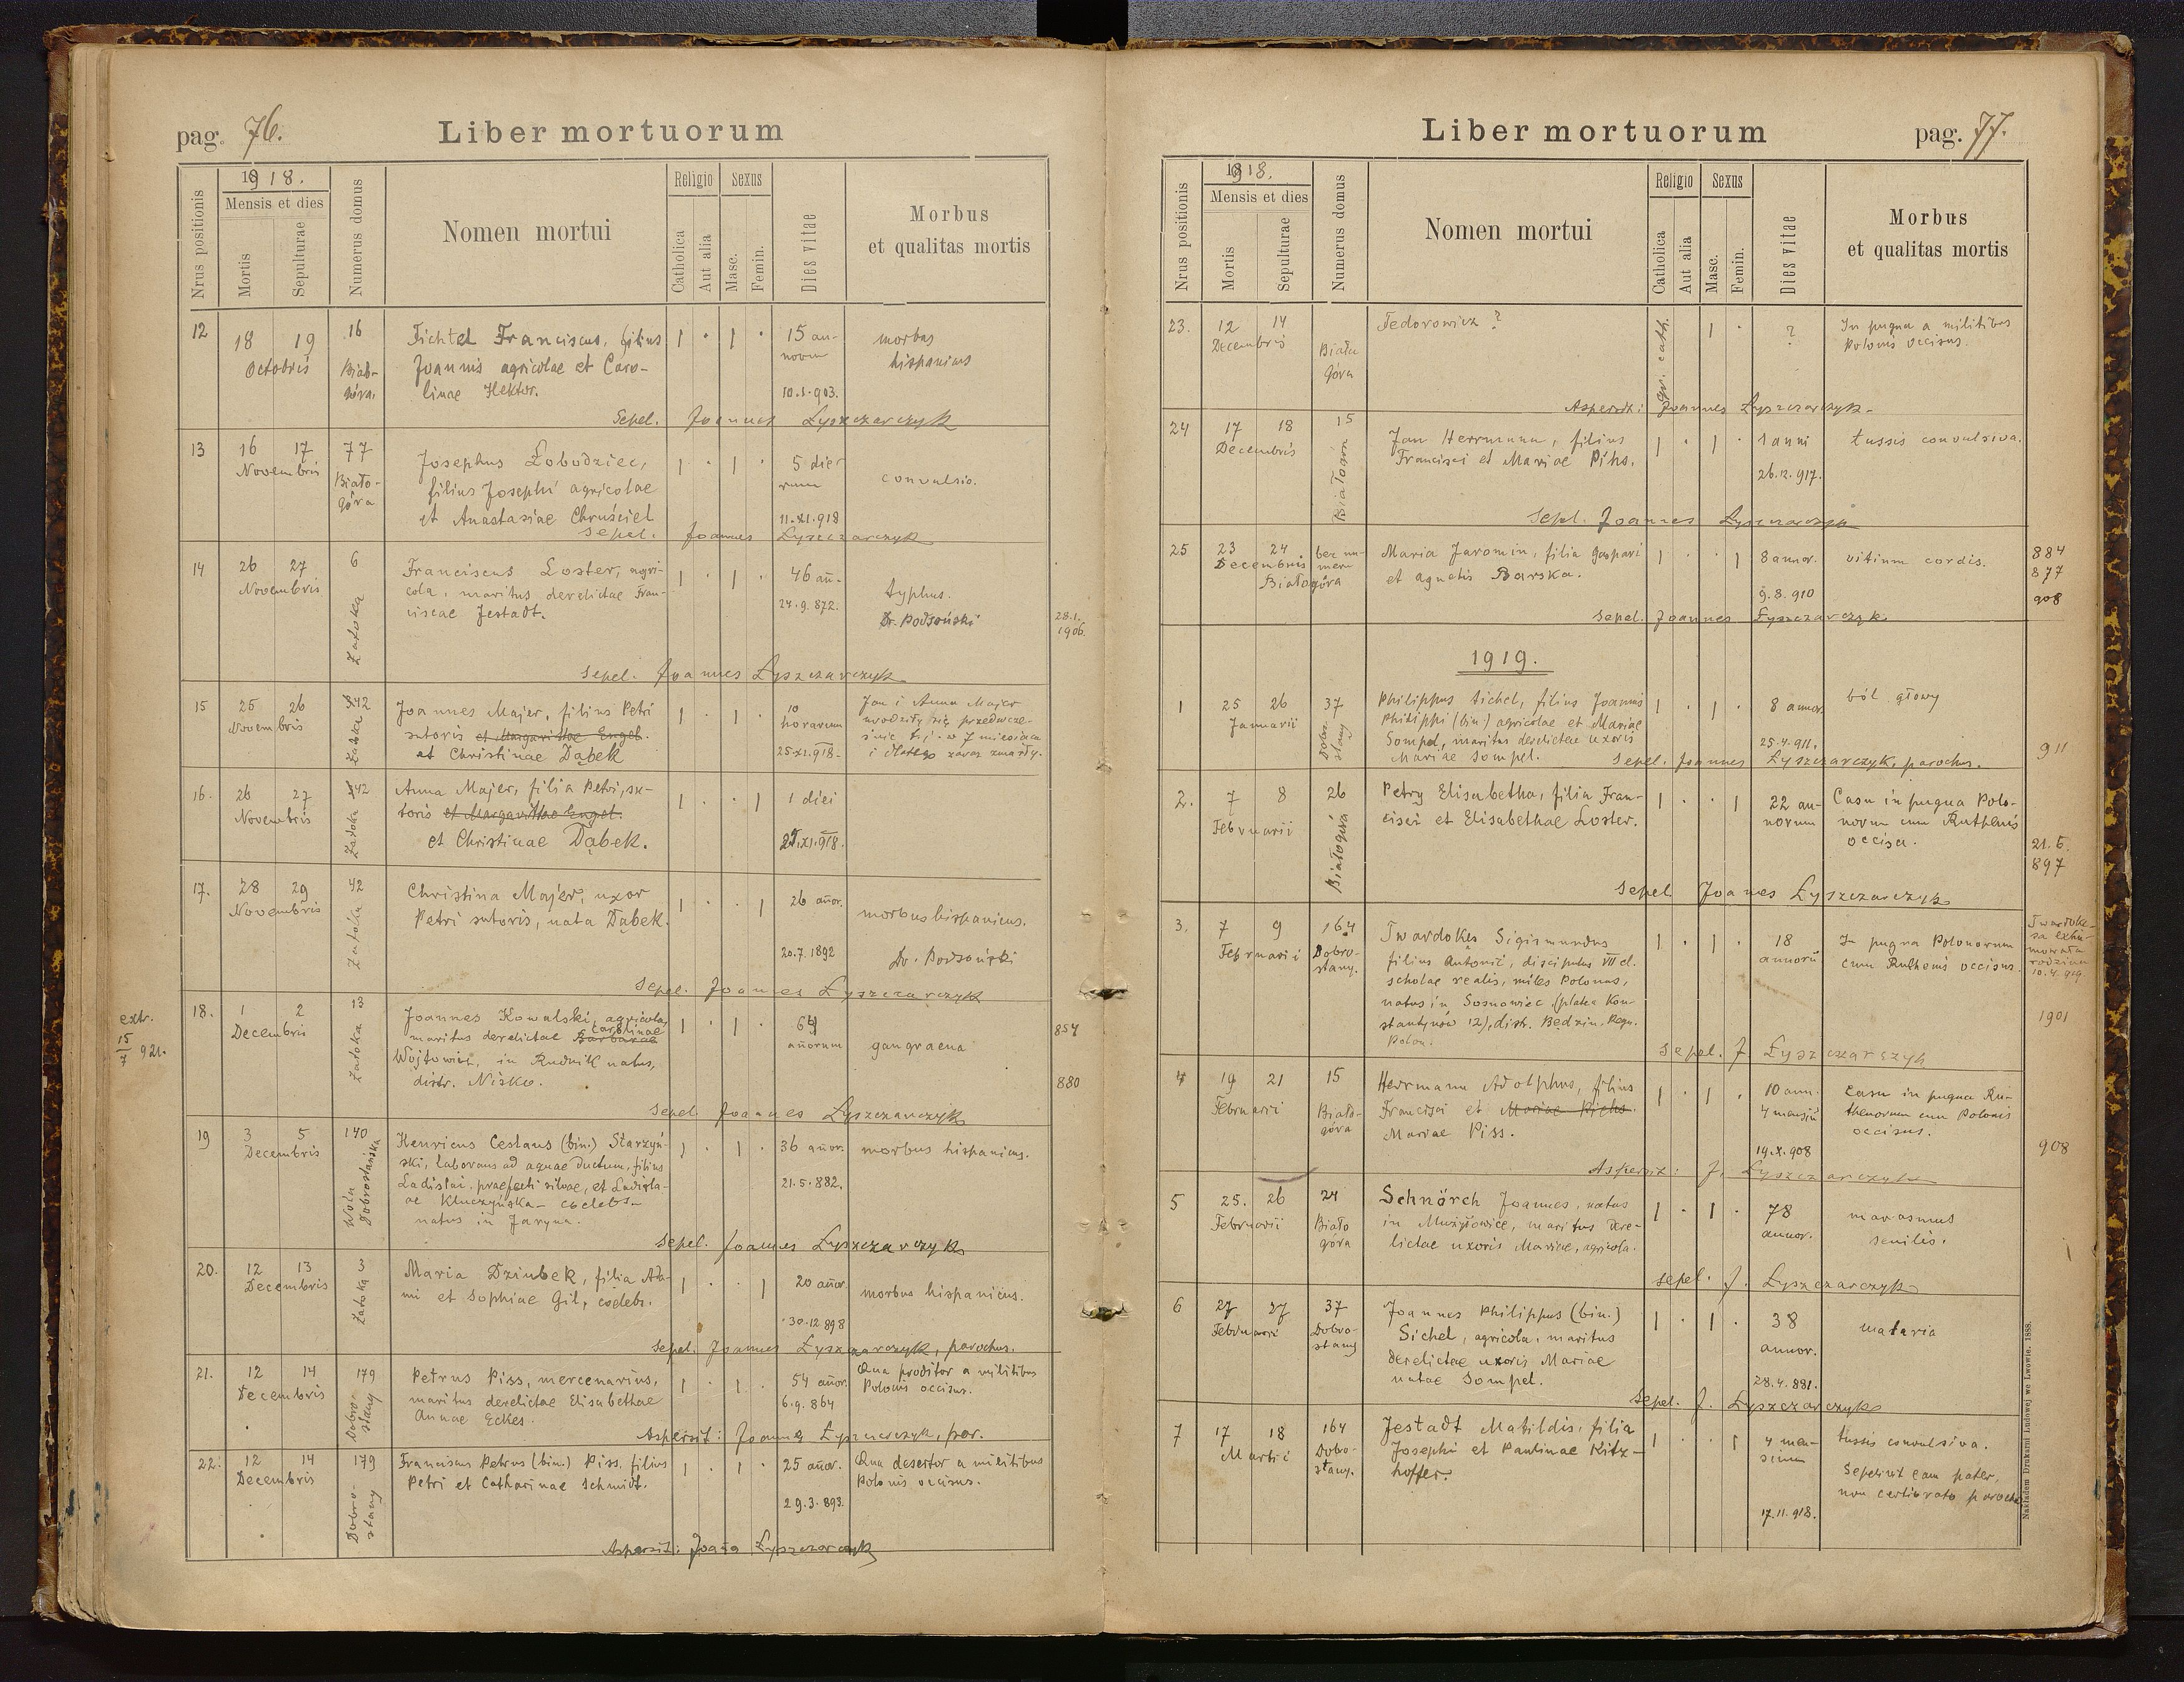 pag. 76.
Liber mortuorum
Nrus positionis
1918.
Mensis et dies
Mortis
Sepulturae
Numerus domus
Nomen mortui
Religio
Catholica
Aut alia
Sexus
Masc.
Femin.
Dies vitae
Morbus
et qualitas mortis
12
18 19
Octobris
16
Biało-
góra.
Tichtel Franciscus, filius
Joannis agricolae et Caro-
linae Hektor.
1 · 1 ·
15 an-
norum
10.1.903.
morbus
hispanicus
Sepel. Joannes Łyszczarczyk
13
16 17
Novembris
77
Biało-
góra
Josephus Łobodziec,
filius Josephi agricolae
et Anastasiae Chruściel
1 · 1 ·
5 die
rum
11.XI.918
convulsio.
Sepel. Joannes Łyszczarczyk
14
26 27
Novembris
6
Zatoka
Franciscus Loster, agri-
cola, maritus derelictae Fran-
ciscae Jestadt.
1 · 1 ·
46 añ-
24.9.872.
typhus.
Dr. Podsoński
28.1.
1906.
Sepel. Joannes Łyszczarczyk
15
25 26
Novembris
42
Zatoka
Joannes Majer, filius Petri
sutoris et Margarithae Engel.
et Christinae Dąbek
1 · 1 ·
10
horarum
25.XI.918.
Jan i Anna Majer
urodziły się przedwcze-
śnie t.j. w 7 miesiącu
i dlatego zaraz zmarły.
16.
26 27
Novembris
42
Zatoka
Anna Majer, filia Petri, su-
toris et Margarithae Engel.
et Christinae Dąbek.
1 · · 1
1 diei
25.XI.918.
17.
28 29
Novembris
42
Zatoka
Christina Majer, uxor
Petri sutoris, nata Dąbek.
1 · · 1
26 añor.
20.7.1892
morbus hispanicus.
Dr. Podsoński
Sepel. Joannes Łyszczarczyk
extr.
15
7 921.
18.
1 2
Decembris
13
Zatoka
Joannes Kowalski, agricola,
Carolinae
maritus derelictae Barbarae
Wojtowicz, in Rudnik natus,
distr. Nisko.
1 · 1 ·
64
añorum
gangraena
854
880
Sepel. Joannes Łyszczarczyk
19
3 5
Decembris
140
Wola
Dobrostańska
Henricus Ceslaus (bin.) Starzyń-
ski, laborans ad aquae ductum, filius
Ladislai, praefecti silvae, et Ladisla-
ae Kluczyńska - coelebs -
natus in Jaryna.
1 · 1 ·
36 añor.
21.5.882.
morbus hispanicus.
Sepel. Joannes Łyszczarczyk
20.
12 13
Decembris
3
Zatoka
Maria Dziubek, filia Ada-
mi et Sophiae Gil, coelebs.
1 · · 1
20 añor.
30.12.898
morbus hispanicus.
Sepel. Joannes Łyszczarczyk, parochus.
21.
12 14
Decembris
179
Dobro-
stany
Petrus Piss, mercenarius,
maritus derelictae Elisabethae
Annae Eckes.
1 · 1 ·
54 añor.
6.9.864
Qua proditor a militibus
Polonis occisus.
Aspersit: Joannes Łyszczarczyk, par.
22.
12 14
Decembris
179
Dobro-
stany
Franciscus Petrus (bin.) Piss, filius
Petri et Catharinae Schmidt.
1 · 1 ·
25 añor.
29.3.893.
Qua desertor a militibus
Polonis occisus.
Aspersit: Joañes Łyszczarczyk
Liber mortuorum
pag. 77.
Nrus positionis
1918.
Mensis et dies
Mortis
Sepulturae
Numerus domus
Nomen mortui
Religio
Catholica
Aut alia
Sexus
Masc.
Femin.
Dies vitae
Morbus
et qualitas mortis
23.
12 14
Decembris
Biała
Góra
Fedorowicz ?
gr. cath.
1 ·
?
In pugna a militibus
Polonis occisus.
Aspersit: Joannes Łyszczarczyk
24
17 18
Decembris
15
Białogóra
Jan Herrmann, filius
Francisci et Mariae Pihs.
1 · 1 ·
1 anni
26.12.917.
tussis convulsiva.
Sepel. Joannes Łyszczarczyk
25
23 24
Decembris
bez nu-
meru
Białogóra
Maria Jaromin, filia Gaspari
et Agnetis Barska.
1 · · 1
8 annor.
9.8.910
vitium cordis.
884
877
908
Sepel. Joannes Łyszczarczyk
1919.
1
25 26
Januarii
37
Dobro-
stany
Philippus Sichel, filius Joannis
Philippi (bin.) agricolae et Mariae
Sompel, maritus derelictae uxoris
Mariae Sompel.
1 · 1 ·
8 annor.
25.4.911.
ból głowy
911
Sepel. Joannes Łyszczarczyk, parochus.
2.
7 8
Februarii
26
Białogóra
Petry Elisabetha, filia Fran-
cisci et Elisabethae Loster.
1 · · 1
22 an-
norum
Casu in pugna Polo-
norum cum Ruthenis
occisa.
21.6.
897
Sepel. Joannes Łyszczarczyk
3.
7 9
Februarii
164
Dobro-
stany.
Twardokes Sigismundus
filius Antonii, discipulus VII cl.
scholae realis, miles Polonus,
natus in Sosnowiec (platea Kon-
stantynów 12), distr. Będzin, Regn.
Polon.
1 · 1 ·
18
annorũ
In pugna Polonorum
cum Ruthenis occisus.
Twardoke-
sa exhu-
mowała
rodzina
10.4.919
1901
Sepel. J. Łyszczarczyk
4
19 21
Februarii
15
Biało-
góra
Herrmann Adolphus, filius
Francisci et Mariae Piehs.
Mariae Piss.
1 · 1 ·
10 ann.
4 mensiũ
19.X.908
Casu in pugna Ru-
thenorum cum Polonis
occisus.
908
Aspersit: J. Łyszczarczyk
5
25. 26
Februarii
24
Biało
góra
Schnörch Joannes, natus
in Mużyłowice, maritus dere-
lictae uxoris Mariae, agricola.
1 · 1 ·
78
annor.
marasmus
senilis.
Sepel. J. Łyszczarczyk
6
27 27
Februarii
37
Dobro-
stany
Joannes Philippus (bin.)
Sichel, agricola, maritus
derelictae uxoris Mariae
natae Sompel.
1 · 1 ·
38
annor.
28.4.881.
malaria
Sepel. J. Łyszczarczyk
7
17 18
Martii
164
Dobro-
stany.
Jestadt Matildis, filia
Josephi et Paulinae Kitz-
hoffer.
1 · · 1
4 men-
sium
17.11.918.
tussis convulsiva.
Sepelivit eam pater,
non certiorato parocho
Nakładem Drukarni Ludowej we Lwowie. 1888.